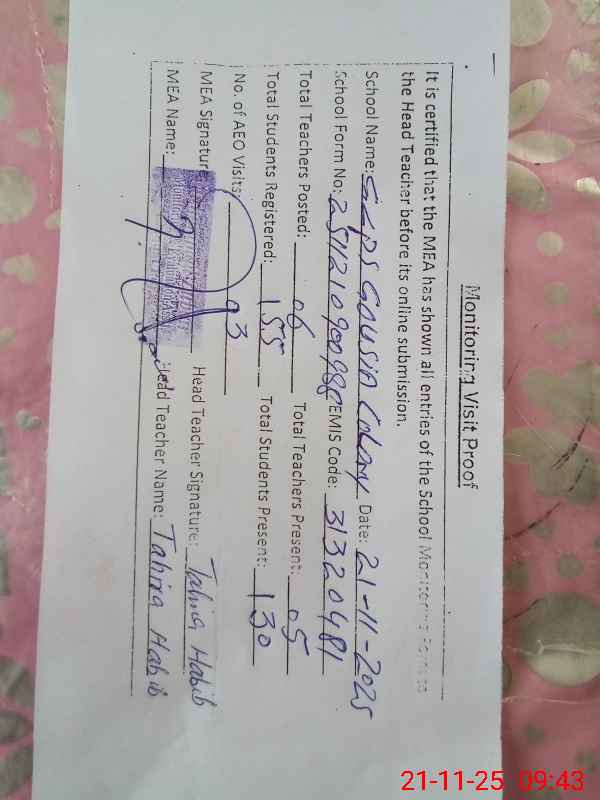 Monitoring Visit Proof
It is certified that the MEA has shown all entries of the School Monitoring Form to
the Head Teacher before its online submission.
School Name: GGPS Gousia Colony Date: 21-11-2025
School Form No: EMIS Code: 31320481
Total Teachers Posted: 06 Total Teachers Present: 05
Total Students Registered: 155 Total Students Present: 130
No. of AEO Visits: 03
MEA Signature: Head Teacher Signature: Tahira Habib
MEA Name: Head Teacher Name: Tahira Habib
21-11-25 09:43